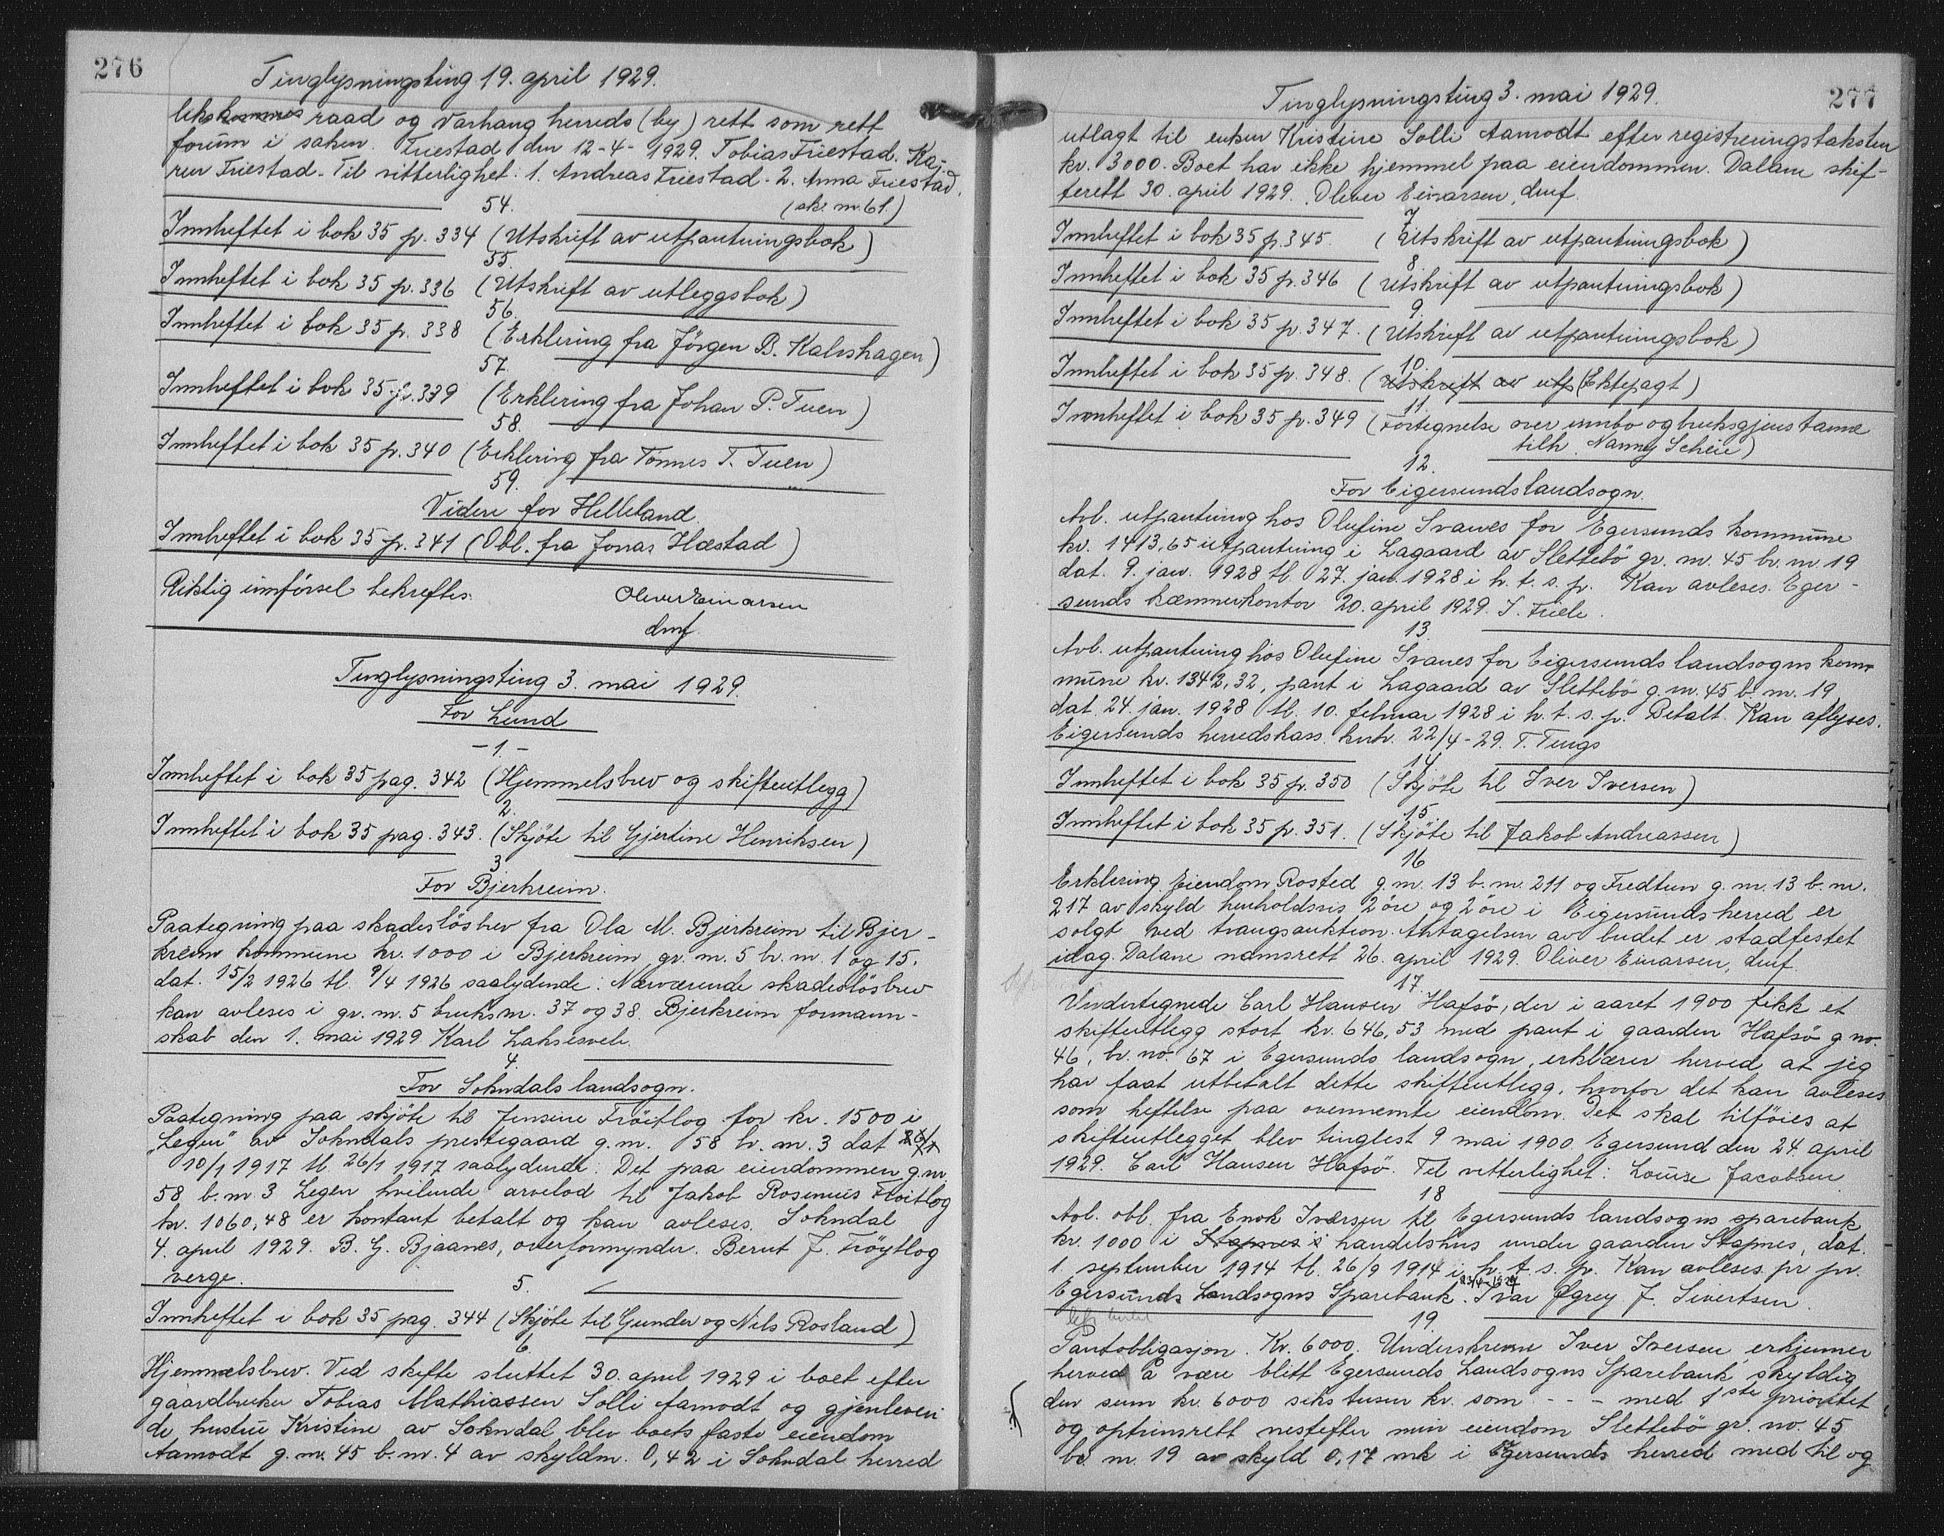 276
Tinglysningsting 19. april 1929.
raad og Varhaug herreds (by) rett som rett
forum i saken. Friestad den 12-4-1929. Tobias Friestad. Ka-
ren Friestad. Til vitterlighet: 1. Andreas Friestad - 2. Anna Friestad.
54. (sk. m. bl.)
Innheftet i bok 35 p. 334 (Utskrift av utpantningsbok)
55.
Innheftet i bok 35 p. 336 (Utskrift av utleggsbok)
56.
Innheftet i bok 35 p. 338 (Erklering fra Jörgen B. Kalvshagen)
57.
Innheftet i bok 35 p. 339 (Erklering fra Johan P. Tuen)
58.
Innheftet i bok 35 p. 340 (Erklering fra Tönnes T. Tuen)
59.
Videre for Helleland.
Innheftet i bok 35 p. 341 (Obl. fra Jonas Hæstad)
Riktig innförsel bekreftes. Oliver Einarsen
dmf.
Tinglysningsting 3. mai 1929.
For Lund
-1-
Innheftet i bok 35 pag. 342 (Hjemmelsbrev og skifteutlegg)
2.
Innheftet i bok 35 pag. 343. (Skjöte til Gjertine Henriksen)
3
For Bjerkreim.
Paategning paa skadeslösbrev fra Ola M. Bjerkreim til Bjer-
kreim kommune kr. 1000 i Bjerkreim gr. nr. 5 br. nr. 1 og 15.
dat. 15/2 1926 tl. 9/4 1926 saalydende: Nærværende skadeslösbrev
kan avleses i gr. nr. 5 bruksnr. 37 og 38. Bjerkreim formann-
skab den 1. mai 1929 Karl Laksesvele.
4.
For Sokndals landsogn.
Paategning paa skjöte til Jensine Fröitlog for kr. 1500 i
"Legen" av Sokndals prestegaard g.nr. 58 br. nr. 3 dat
10/1 1917 tl. 26/1 1917 saalydende: Det paa eiendommen g.nr.
58 b.nr. 3 Legen hvilende arvelod til Jakob Rosenius Fröitlog
kr. 1060,48 er kontant betalt og kan avleses. Sokndal
4. april 1929. B. G. Bjaanes, overformynder. Bernt J. Fröytlog
verge.
5.
Innheftet i bok 35 pag. 344 (Skjöte til Gunder og Nils Rosland)
6.
Hjemmelsbrev. Ved skifte sluttet 30. april 1929 i boet efter
gaardbruker Tobias Mathiassen Solli Aamodt og gjenleven
de hustru Kristine av Sokndal blev boets faste eiendom
Aamodt g.nr. 45 b.nr. 4 av skyldm. 0,42 i Sokndal herred
Tinglysningsting 3. mai 1929.
277
utlagt til enken Kristine Solli Aamodt efter registreringstaksten
kr. 3000. Boet har ikke hjemmel paa eiendommen. Dalane skif-
terett 30. april 1929. Oliver Einarsen, dmf.
7
Innheftet i bok 35 p. 345. (Utskrift av utpantningsbok)
8.
Innheftet i bok 35 p. 346 (Utskrift av utpantningsbok)
9.
Innheftet i bok 35 p. 347. (Utskrift av utpantningsbok)
10.
Innheftet i bok 35 p. 348. (Utskrift av utp (Ektepagt)
11.
Innheftet i bok 35 p. 349 (Fortegnelse over innbo og bruksgjenstanne
tilh. Nanny Scheie)
12.
For Eigersunds landsogn.
Avl. utpantning hos Olufine Svanes for Egersunds kommune
kr. 1413,65 utpantning i Lagaard av Slettebö gr. nr. 45 br. nr. 19
dat. 9. jan. 1928 tl. 27. jan. 1928 i h. t. s. p. Kan avleses. Eger-
sunds kæmnerkontor 20. april 1929. S. Friele.
13.
Avl. utpantning hos Olufine Svanes for Eigersunds landsogns kom-
mune kr. 1342,32, pant i Lagaard av Slettebö g.nr. 45 b.nr. 19,
dat. 24. jan. 1928 tl. 10. februar 1928 i h. t. s. p. Betalt. Kan aflyses.
Eigersunds herredskass. kntr. 22/4-29. T. Tengs
14
Innheftet i bok 35 p. 350 (Skjöte til Iver Iversen)
15.
Innheftet i bok 35 p. 351. (Skjöte til Jakob Andreassen)
16
Erklering. Eiendom Rosted g.nr. 13 b.nr. 211 og Fredtun g.nr. 13 b.nr.
217 av skyld henholdsvis 2 öre og 2 öre i Eigersunds herred er
solgt ved tvangsauktion. Antagelsen av budet er stadfestet
idag. Dalane namsrett 26. april 1929. Oliver Einarsen, dmf.
17.
Undertegnede Carl Hansen Hafsö, der i aaret 1900 fikk et
skifteutlegg stort kr. 646,53 med pant i gaarden Hafsö g no.
46, br. no. 67 i Egersunds landsogn, erklærer herved, at jeg
har faat utbetalt dette skifteutlegg, hvorfor det kan avleses
som heftelse paa ovennemte eiendom. Det skal tilföies at
skifteutlegget blev tinglest 9 mai 1900. Egersund den 24. april
1929. Carl Hansen Hafsö. Til vitterlighet: Louise Jacobsen
18
Avl. obl. fra Enok Iversen til Egersunds landsogns sparebank
kr. 1000 i Stapnes i handelshus under gaarden Stapnes, dat.
1. september 1914 tl. 26/9 1914 i h. t. s. p. Kan avleses. pr pr.
Egersunds Landsogns Sparebank. 23/4-1929 Ivar Øgrey J. Sivertsen.
19
Pantobligasjon. Kr. 6000. Underskrevne Iver Iversen erkjenner
herved å være blitt Egersunds Landsogns Sparebank skyldig
den sum kr. 6000 seks tusen kr. som - - - med 1ste prioritet
og optrinsrett nestefter min eiendom Slettebö gr. no. 45
br nr. 19 av skyld 0,17 mk i Egersunds herred med til og